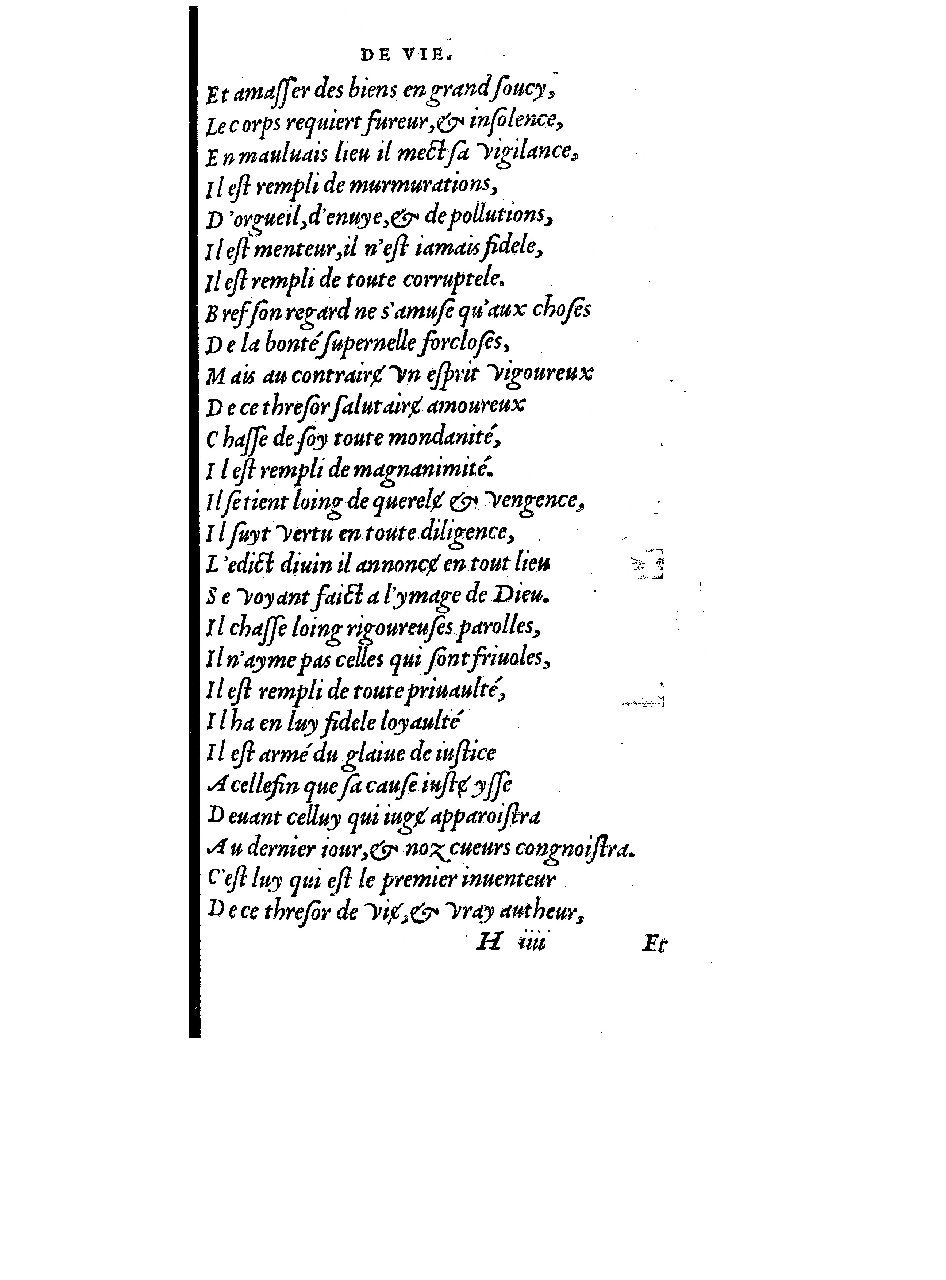 DE VIE.
Et amaſſer des biens en grand ſoucy,
Le corps requiert fureur, & inſolence,
En mauluais lieu il mect ſa vigilance,
Il eſt rempli de murmurations,
D'orgueil, d'enuye, & de pollutions,
Il eſt menteur, il n'eſt iamais fidele,
Il eſt rempli de toute corruptele.
Bref ſon regard ne s'amuſe qu'aux choſes
De la bonté ſupernelle forcloſes,
Mais au contrairɇ vn eſprit vigoureux
De ce threſor ſalutairɇ amoureux
Chaſſe de ſoy toute mondanité,
Il eſt rempli de magnanimité.
Il ſe tient loing de querelɇ & vengence,
Il ſuyt vertu en toute diligence,
L'edict diuin il annoncɇ en tout lieu
Se voyant faict a l'ymage de Dieu.
Il chaſſe loing rigoureuſes parolles,
Il n'ayme pas celles qui ſont friuoles,
Il eſt rempli de toute priuaulté,
Il ha en luy fidele loyaulté
Il eſt armé du glaiue de iuſtice
A cellefin que ſa cauſe iuſtɇ yſſe
Deuant celluy qui iugɇ apparoiſtra
Au dernier iour, & noz cueurs congnoiſtra.
C'eſt luy qui eſt le premier inuenteur
De ce threſor de viɇ, & vray autheur,
H iiii Et